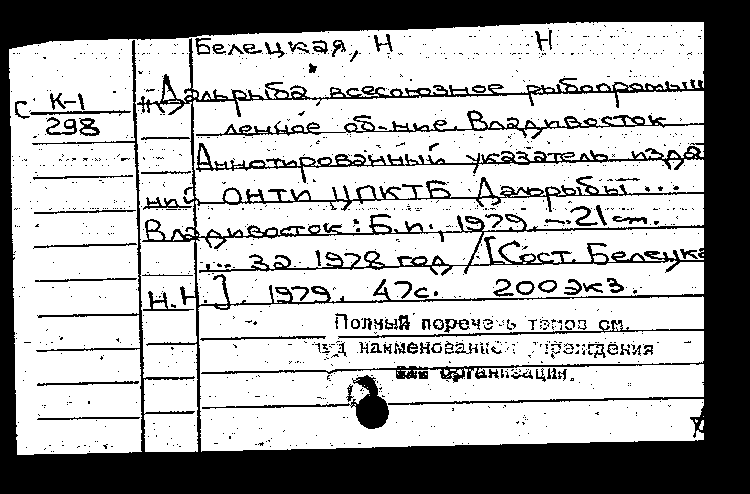 Белецкая, Н Н
С К-1
298
Дальрыба, всесоюзное рыбопромыш
ленное об-ние. Владивосток
Аннотированный указатель изда
ний ОНТИ ЦПКТБ Дальрыбы ...
Владивосток: Б.и., 1979. – 21 cm.
... за 1978 год / [Сост. Белецка
Н.Н.]. 1979. 47с. 200 экз.
Полный перечень томов см.
под наименованием учреждения
или организации.